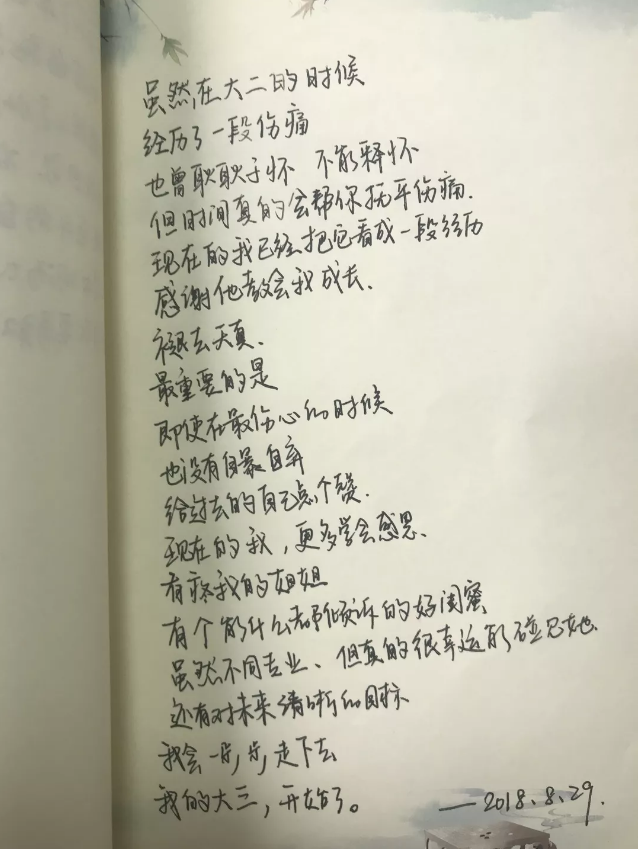 虽然,在大二的时候
经历了一段伤痛
也曾耿耿于怀 不能释怀
但时间真的会帮你抚平伤痛.
现在的我已经把它看成一段经历
感谢他教会我成长.
褪去天真.
最重要的是
即使在最伤心的时候
也没有自暴自弃
给过去的自己点个赞.
现在的我,更多学会感恩.
有疼我的姐姐
有个能什么都倾诉的好闺蜜
虽然不同专业、但真的很幸运能碰见她.
还有对未来清晰的目标
我会一步,步,走下去
我的大三,开始了。
——2018.8.29.